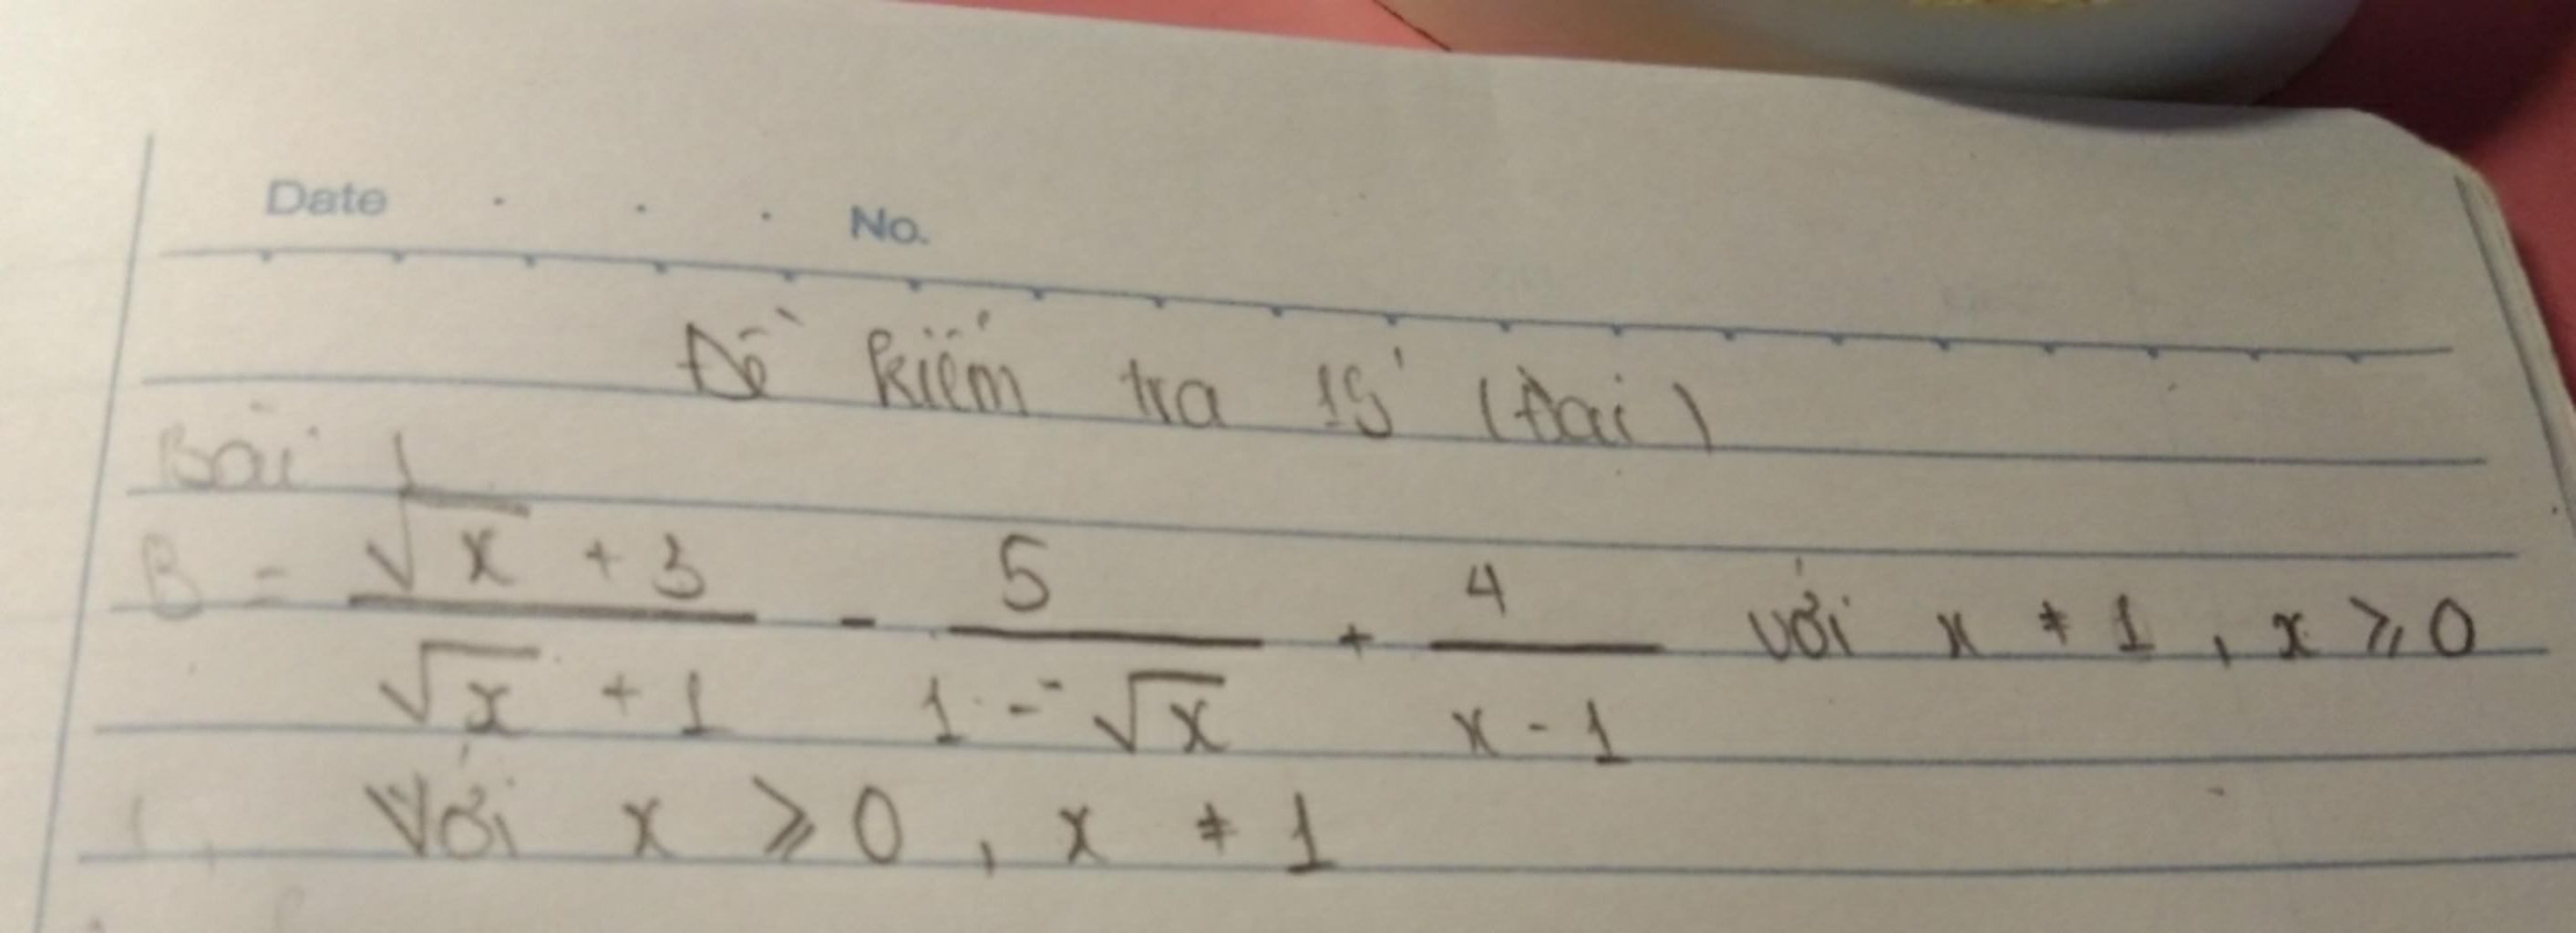 Date . . . No.
Đề kiểm tra 15' (Đại)
Bài 1
B = \frac{\sqrt{x} + 3}{\sqrt{x} + 1} - \frac{5}{1 - \sqrt{x}} + \frac{4}{x - 1} với x ≠ 1, x ⩾ 0
1, Với x ⩾ 0, x ≠ 1